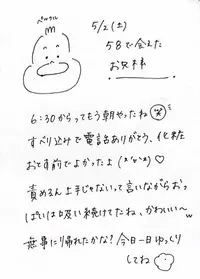 5/2(土)
58で会えた
お兄様
6:30からってもう朝やったね(笑)
すべり込みで電話ありがとう、化粧
おとす前でよかったよ(*'∀'*)♡
責めるん上手じゃないって言いながらおっ
ぱいは吸い続けてたね、かわいい〜w
無事に帰れたかな?今日一日ゆっくり
してね